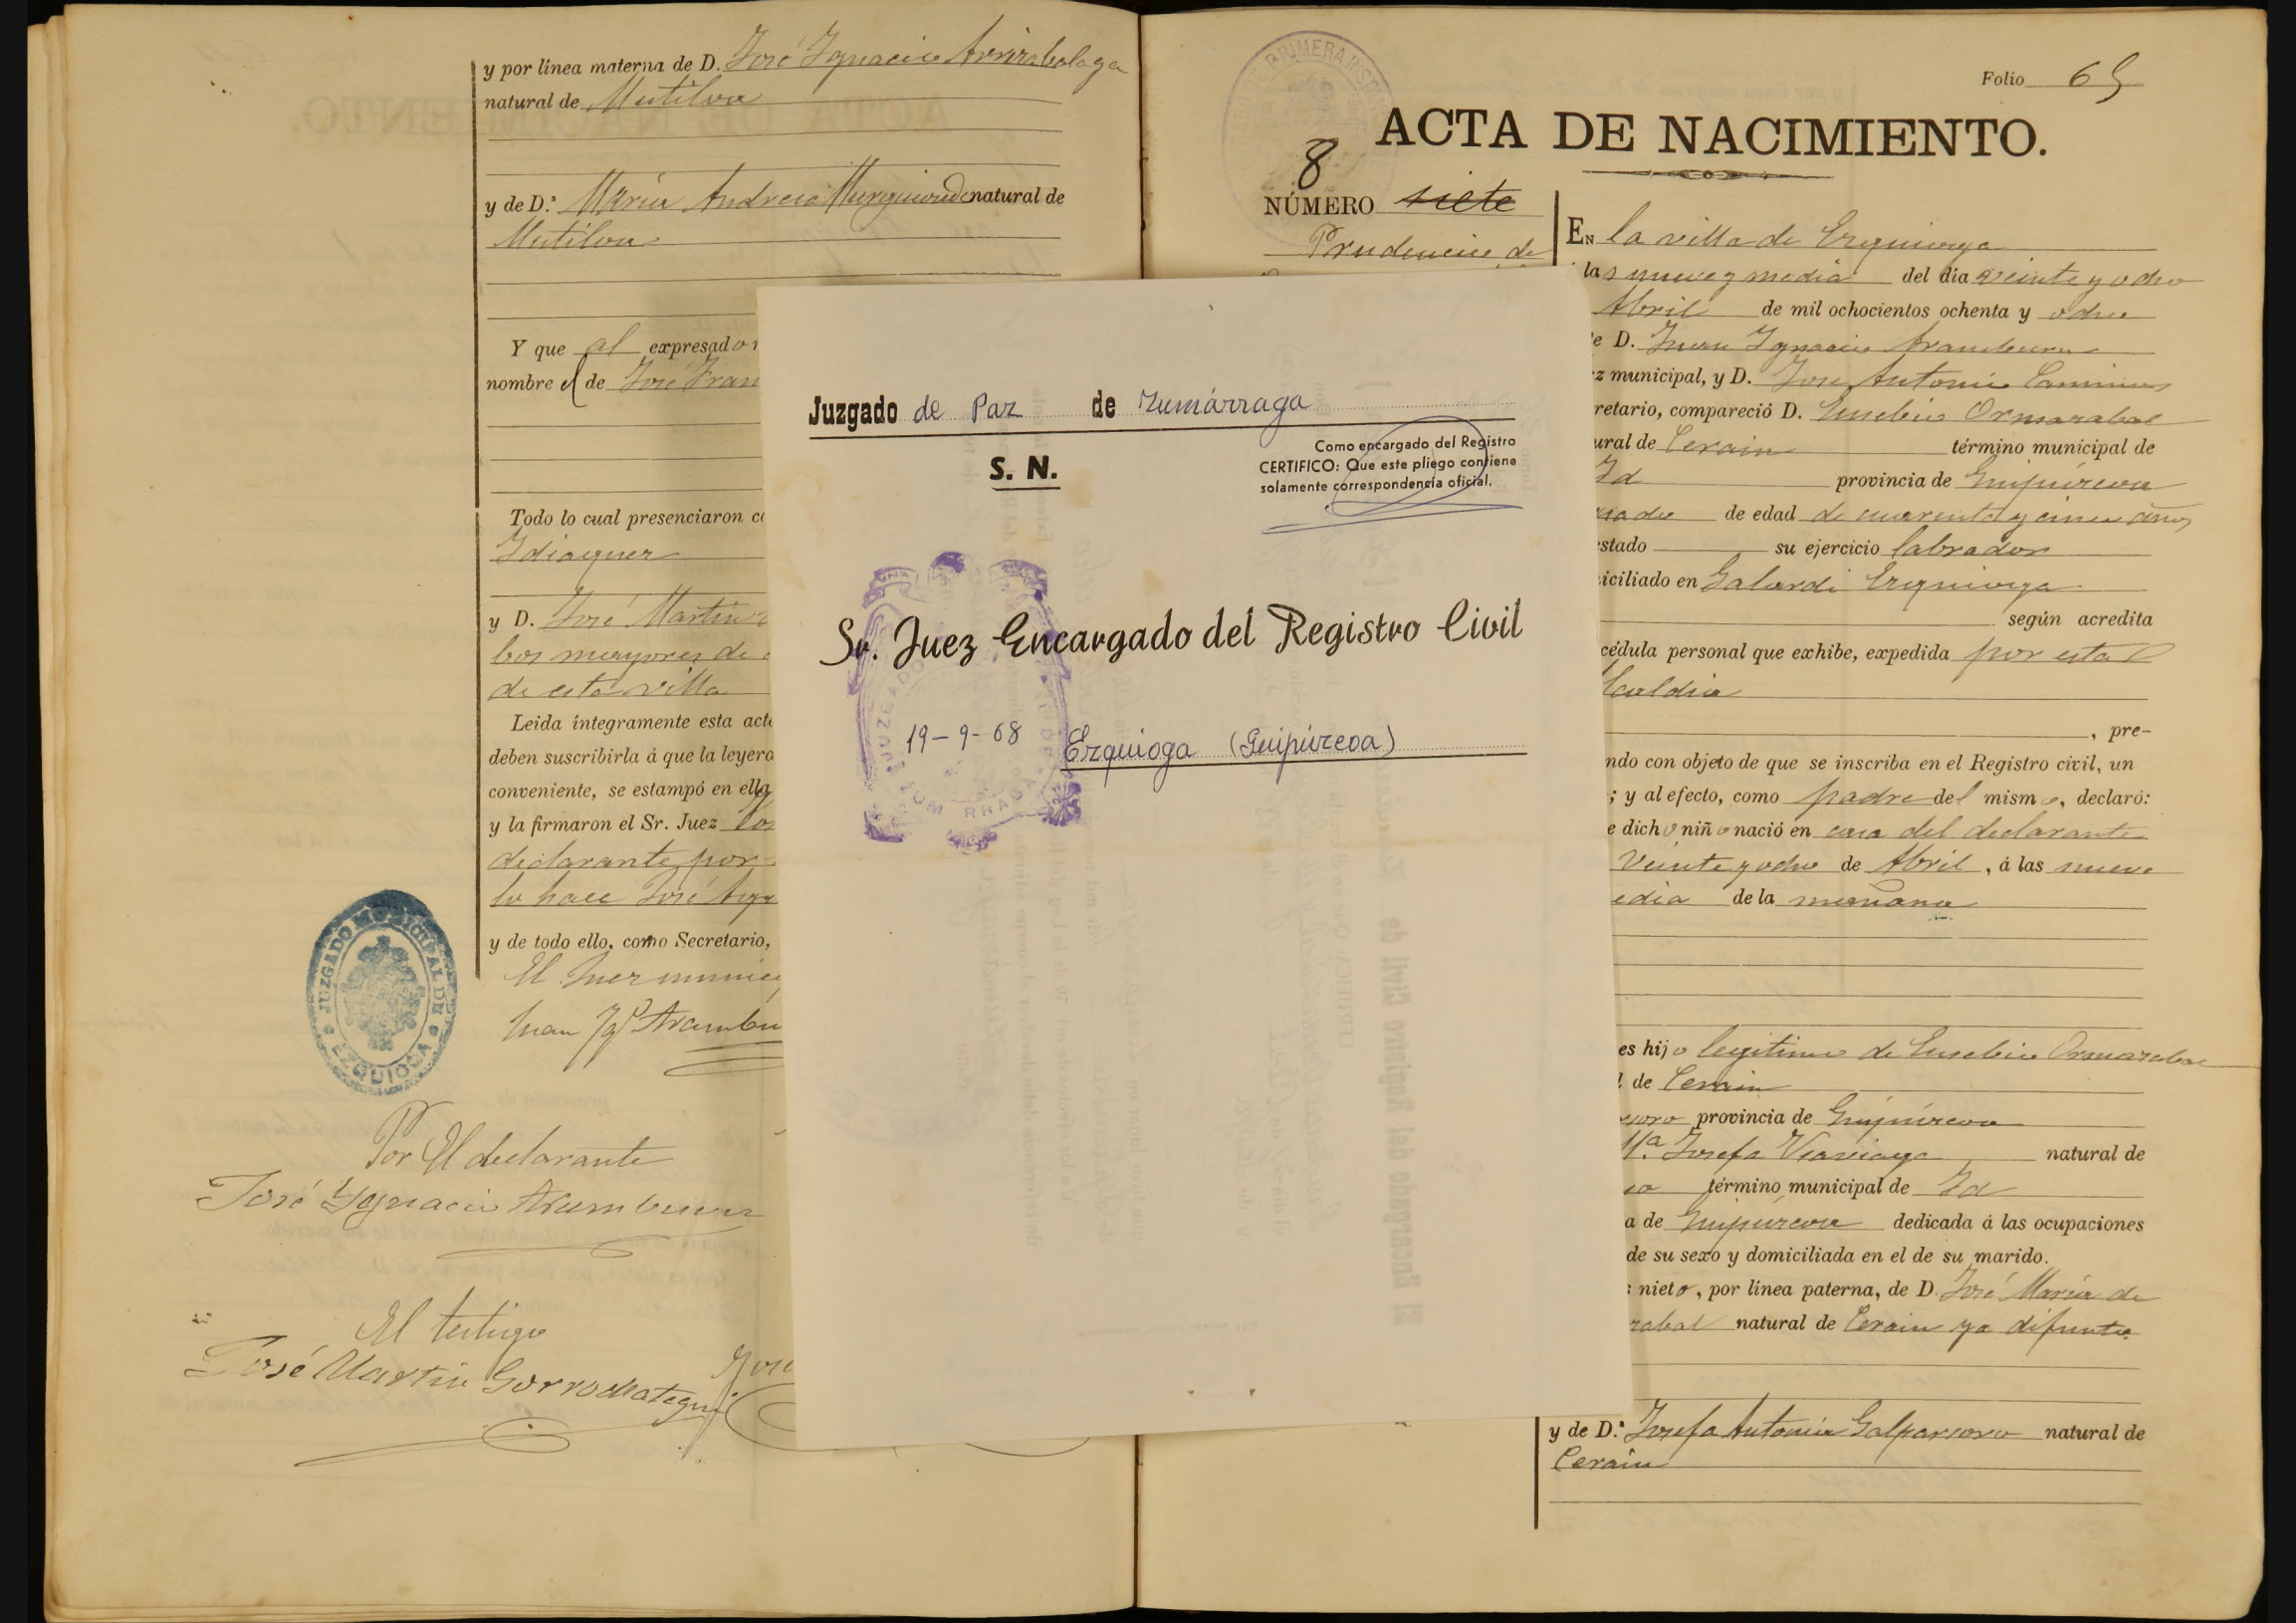 y por línea materna de D. José Ygnacio Arrizabalaga
natural de Mutiloa
y de D.ª María Andresa Murguiondo natural de
Mutiloa
Y que al expresado
nombre de José Fran
Todo lo cual presenciaron co
Ydiaquez
y D. José Martin
bos mayores de
de esta villa
Leida íntegramente esta acta
deben suscribirla á que la leyera
conveniente, se estampó en ella
y la firmaron el Sr. Juez
declarante por
lo hace José
y de todo ello, como Secretario,
El Juez munici
Juan Yg.º Arambu
JUZGADO MUNICIPAL DE EZQUIOGA
Por El declarante
José Ygnacio Aramburu
El testigo
José Martin Gorrochategui
José
Juzgado de Paz de Zumárraga
Como encargado del Registro
CERTIFICO: Que este pliego contiene
solamente correspondencia oficial.
S. N.
Sr. Juez Encargado del Registro Civil
19-9-68
Ezquioga (Guipúzcoa)
Folio 65
ACTA DE NACIMIENTO.
8
NÚMERO siete
Prudencio de
En la villa de Ezquioga
las nueve y media del dia veinte y ocho
Abril de mil ochocientos ochenta y ocho
e D. Juan Ygnacio Aramburu
z municipal, y D. Jose Antonio Caminos
retario, compareció D. Eusebio Ormazabal
ural de Cerain término municipal de
Id provincia de Guipúzcoa
de edad de cuarenta y cinco años
stado su ejercicio labrador
iciliado en Galardi Ezquioga
según acredita
cédula personal que exhibe, expedida por esta
lcaldia
, pre-
ndo con objeto de que se inscriba en el Registro civil, un
; y al efecto, como padre del mismo, declaró:
e dicho niño nació en casa del declarante
Veinte y ocho de Abril, á las nueve
edia de la mañana
es hijo legitimo de Eusebio Ormazabal
l de Cerain
provincia de Guipúzcoa
M.ª Josefa Viaviaga natural de
término municipal de Id
a de Guipúzcoa dedicada á las ocupaciones
de su sexo y domiciliada en el de su marido.
nieto, por línea paterna, de D. José María de
zabal natural de Cerain ya difunto
y de D.ª Josefa Antonia Galparsoro natural de
Cerain